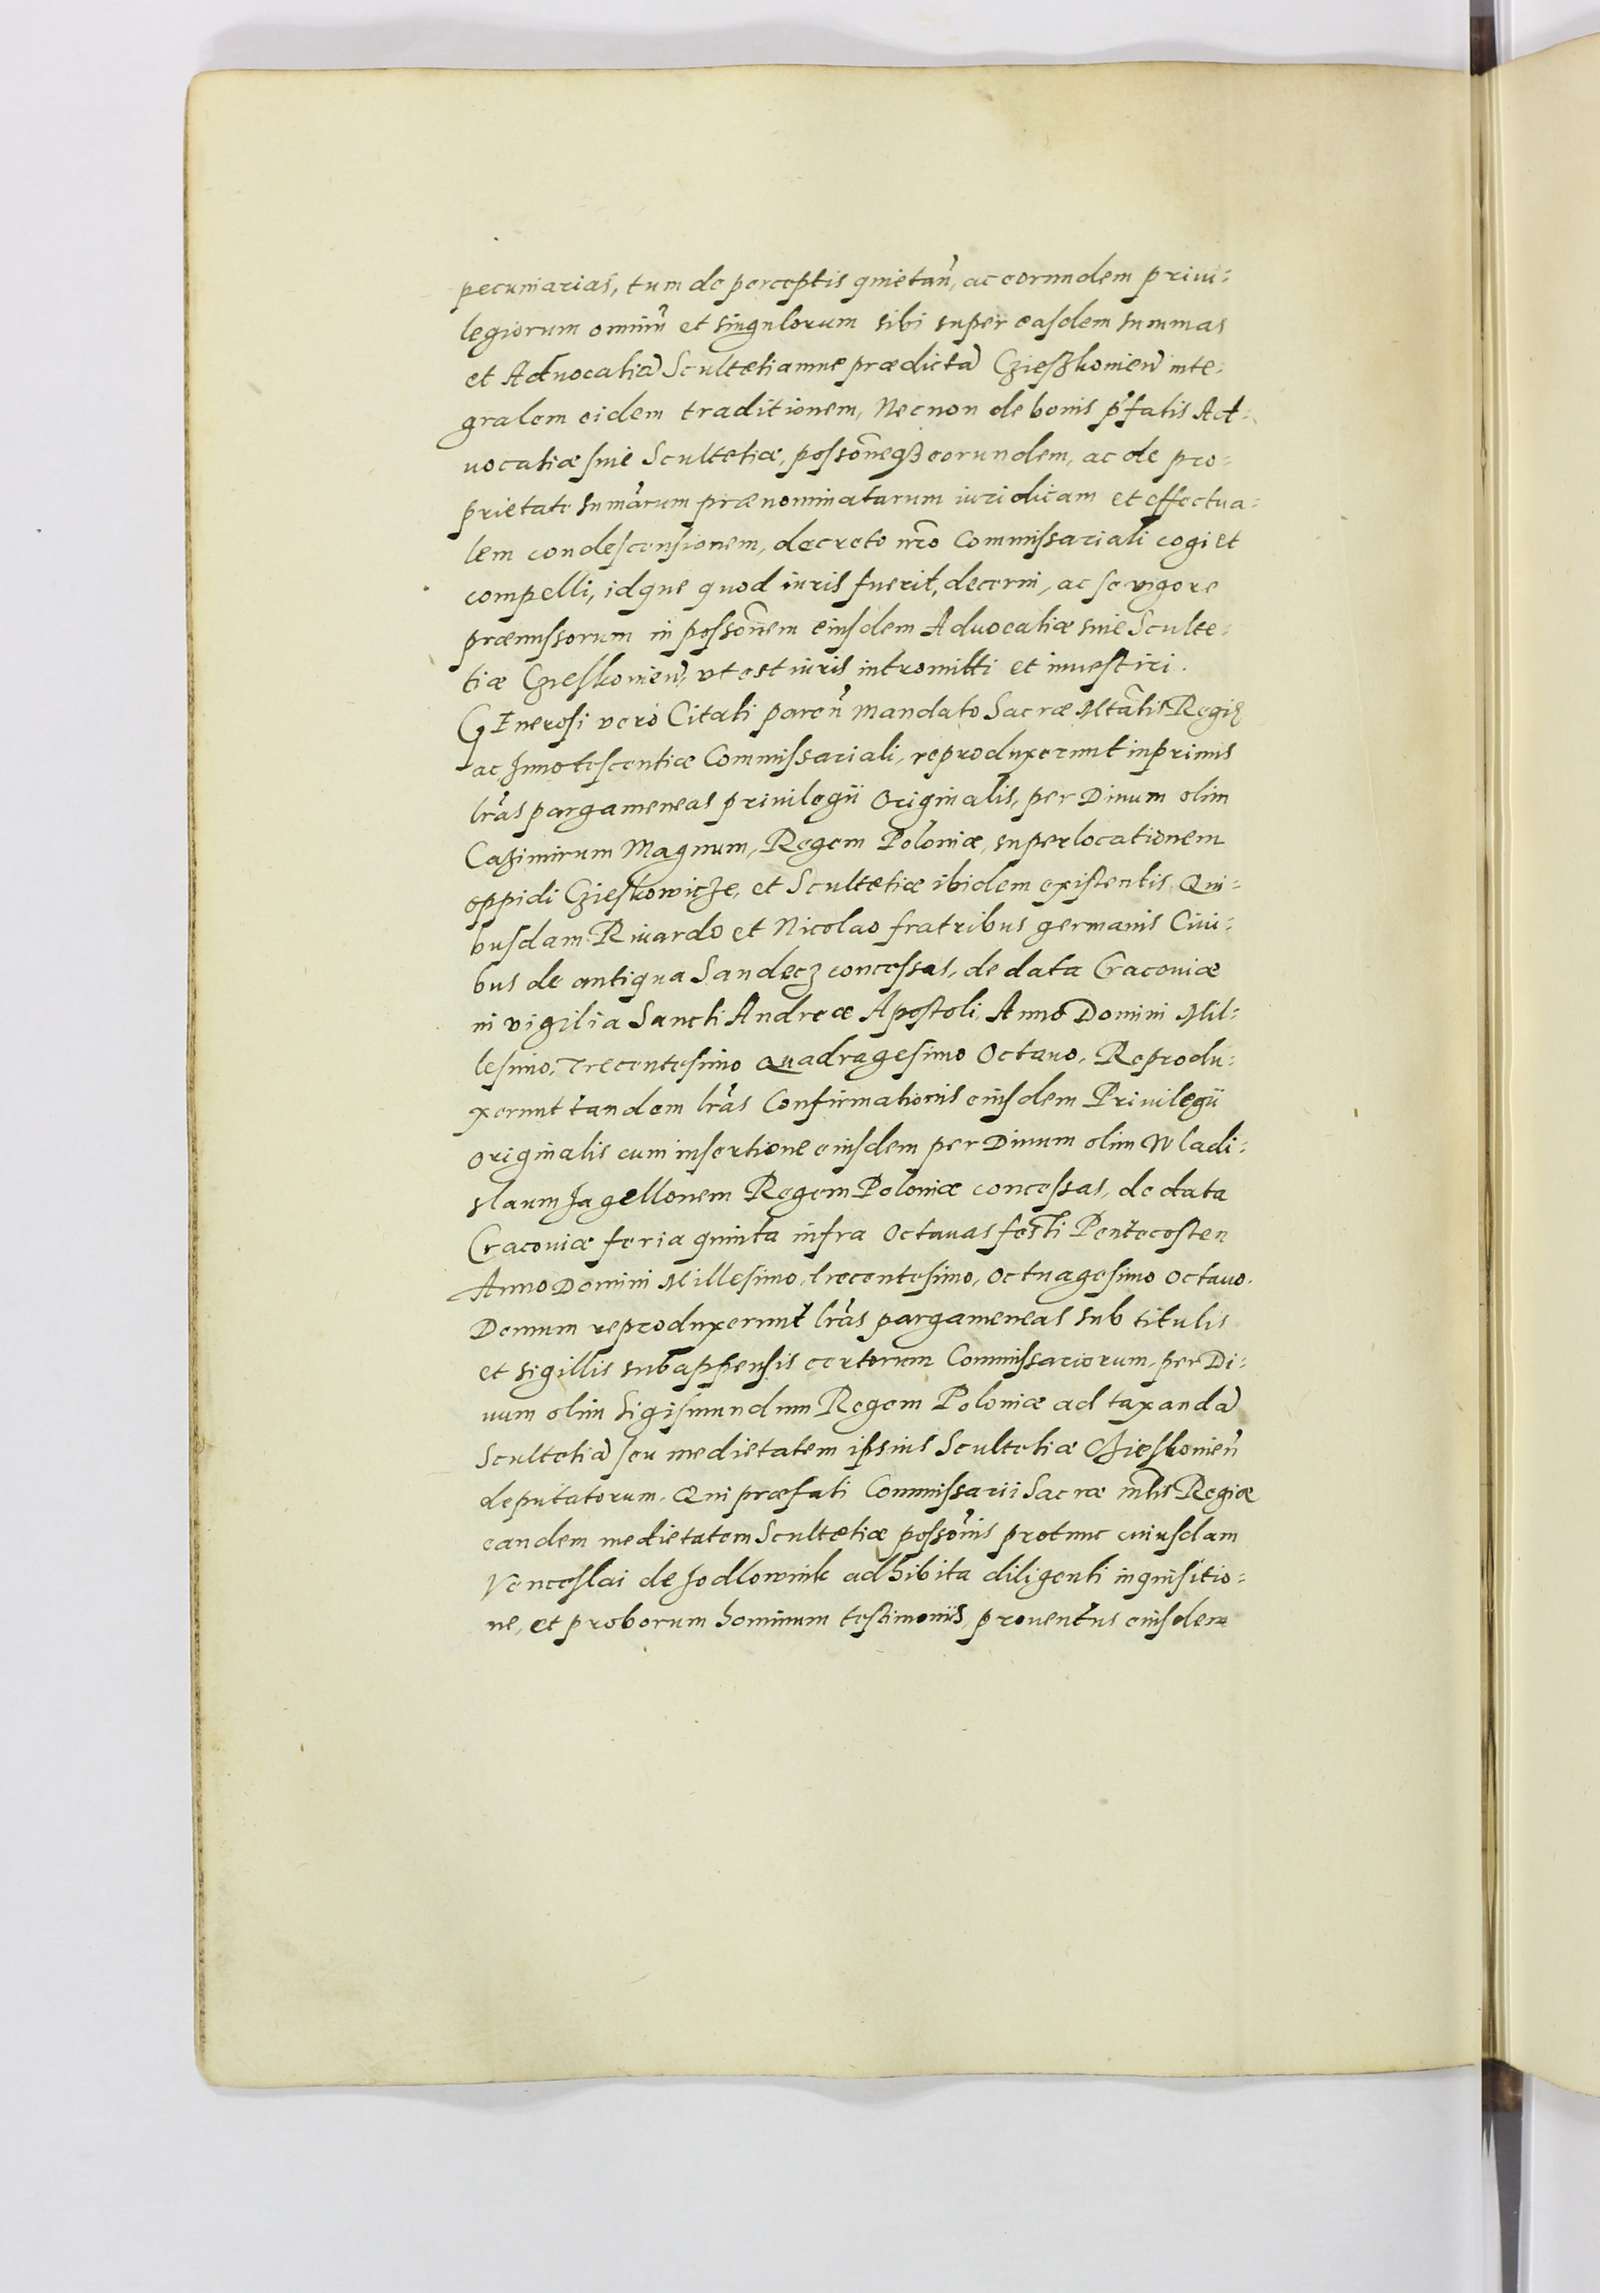 pecuniarias, tum de perceptis quietan̄, ac eorundem priui-
legiorum omniū et singulorum sibi super easdem summas
et Aduocatiā Scultetiamue prædictā Czieszkouien̄ inte-
gralem eidem traditionem, Necnon de bonis p̄fatis Ad-
uocatiæ siue Scultetiæ, possōneqꝫ eorundem, ac de pro-
prietate sum̄arum prænominatarum iuridicam et effectua-
lem condescensionem, decreto nr̄o Commissariali cogi et
compelli, idque quod iuris fuerit, decerni, ac se vigore
præmissorum in possōnem eiusdem Aduocatiæ siue Sculte-
tiæ Czieskouien̄, vt est iuris intromitti et inuestiri.
GEnerosi vero Citati paren̄ Mandato Sacræ Mtātis Regię
ac Innotescentiæ Commissariali, reproduxerunt inprimis
lr̄as pargameneas priuilegii Originalis, per Diuum olim
Cazimirum Magnum, Regem Poloniæ, super locationem
oppidi Czieskowicze, et Scultetiæ ibidem existentis, Qui-
busdam Riuardo et Nicolao fratribus germanis Ciui-
bus de antiqua Sandecz concessas, de data Cracouiæ
in vigilia Sancti Andreæ Apostoli, Anno Domini Mil-
lesimo, Trecentesimo Quadragesimo Octauo, Reprodu-
xerunt tandem lr̄as Confirmationis eiusdem Priuilegii
originalis cum insertione eiusdem per Diuum olim Wladi-
slaum Jagellonem Regem Poloniæ concessas, de data
Cracouiæ feria quinta infra Octauas festi Pentecosten
Anno Domini Millesimo, trecentesimo, octuagesimo octauo.
Demum reproduxerunt lr̄as pargameneas sub titulis
et sigillis subappensis certorum Commissariorum, per Di-
uum olim Sigismundum Regem Poloniæ ad taxandā
Scultetiā seu medietatem ipsius Scultetiæ Czieskouien̄
deputatorum. Qui præfati Commissarii Sacræ mt̄is Regiæ
eandem medietatem Scultetiæ possōnis protunc cuiusdam
Venceslai de Jodlownik adhibita diligenti inquisitio-
ne, et proborum hominum testimoniis, prouentus eiusdem